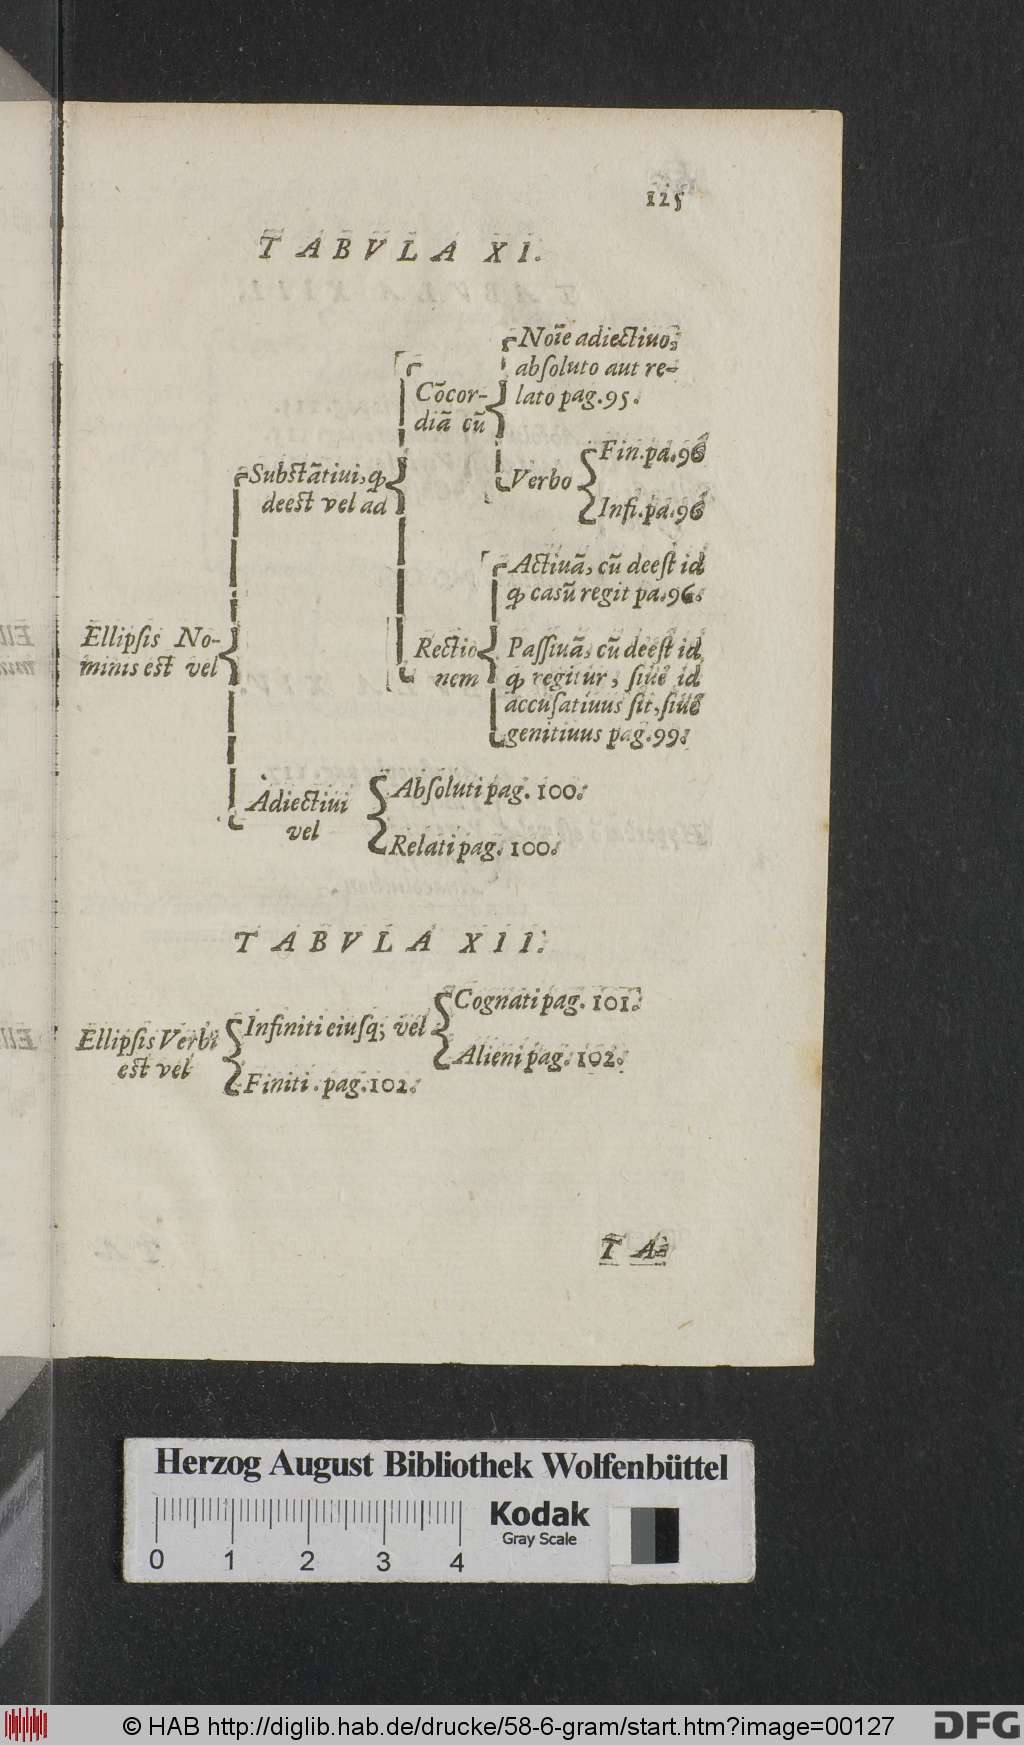 125
TABVLA XI.
Ellipsis No-
minis est vel
Substãtiui, ꝙ
deest vel ad
Cõcor-
diã cũ
Noĩe adiectiuo,
absoluto aut re-
lato pag. 95.
Verbo
Fin. pa. 96
Infi. pa. 96
Rectio
nem
Actiuã, cũ deest id
ꝙ casũ regit pa. 96.
Passiuã, cũ deest id
ꝙ regitur, siue id
accusatiuus sit, siue
genitiuus pag. 99.
Adiectiui
vel
Absoluti pag. 100.
Relati pag. 100.
TABVLA XII.
Ellipsis Verbi
est vel
Infiniti eiusq; vel
Cognati pag. 101.
Alieni pag. 102.
Finiti. pag. 102.
TA-
Herzog August Bibliothek Wolfenbüttel
Kodak
Gray Scale
0 1 2 3 4
© HAB http://diglib.hab.de/drucke/58-6-gram/start.htm?image=00127
DFG